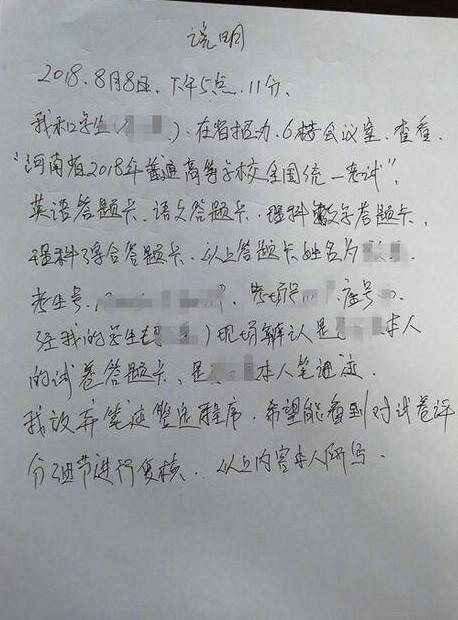 说明
2018.8月8日.下午5点.11分.
我和学生( ).在省招办.6楼会议室.查看.
“河南省2018年普通高等学校全国统一考试”,
英语答题卡.语文答题卡.理科数学答题卡,
理科综合答题卡.以上答题卡姓名为
考生号. .考场号 .座号
经我的学生 )现场辨认是 本人
的试卷答题卡、是 本人笔迹.
我放弃笔迹鉴定程序.希望能看到对试卷评
分细节进行复核.以上内容本人所写.